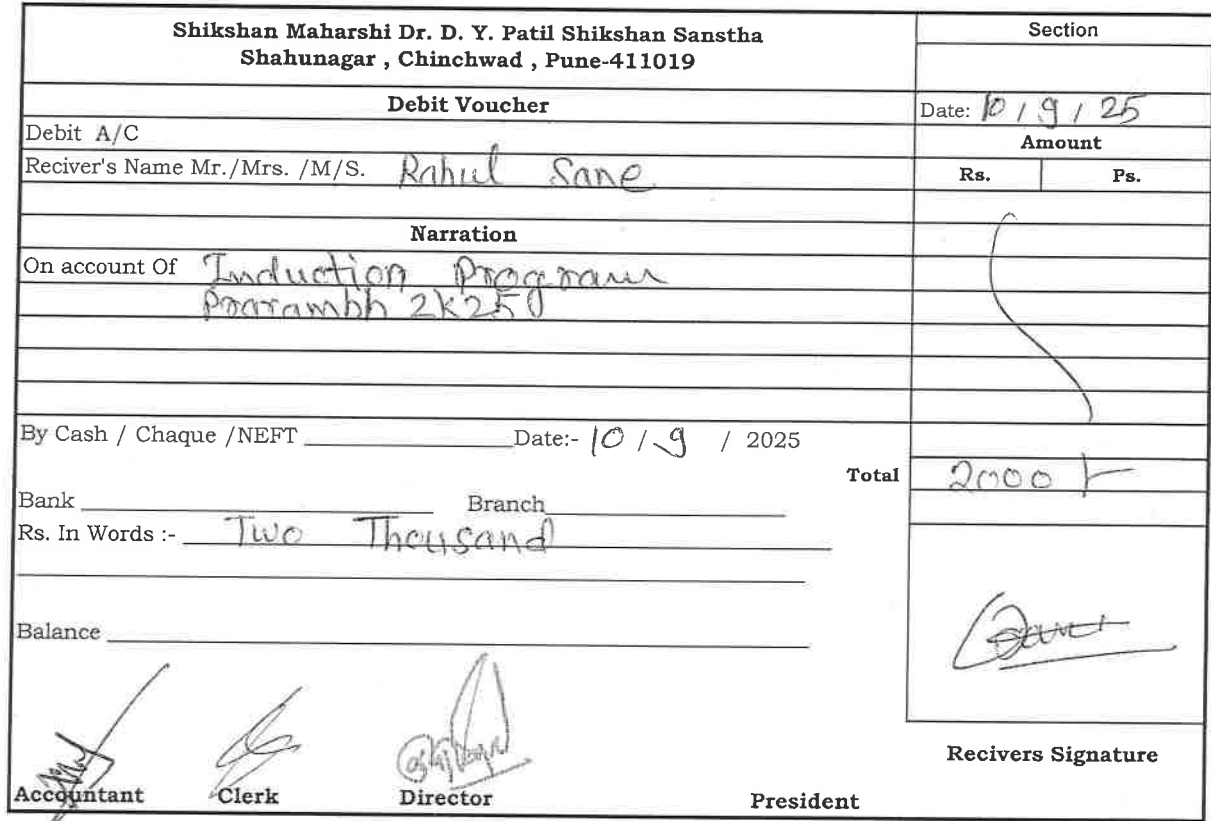 Shikshan Maharshi Dr. D. Y. Patil Shikshan Sanstha
Shahunagar , Chinchwad , Pune-411019
Section
Debit Voucher
Date: 10 / 9 / 25
Debit A/C
Amount
Reciver's Name Mr./Mrs. /M/S. Rahul Sane
Rs. Ps.
Narration
On account Of Induction Program
Prarambh 2k25
By Cash / Chaque /NEFT Date:- 10 / 9 / 2025
Total 2000 /-
Bank Branch
Rs. In Words :- Two Thousand
Balance
Recivers Signature
Accountant Clerk Director President